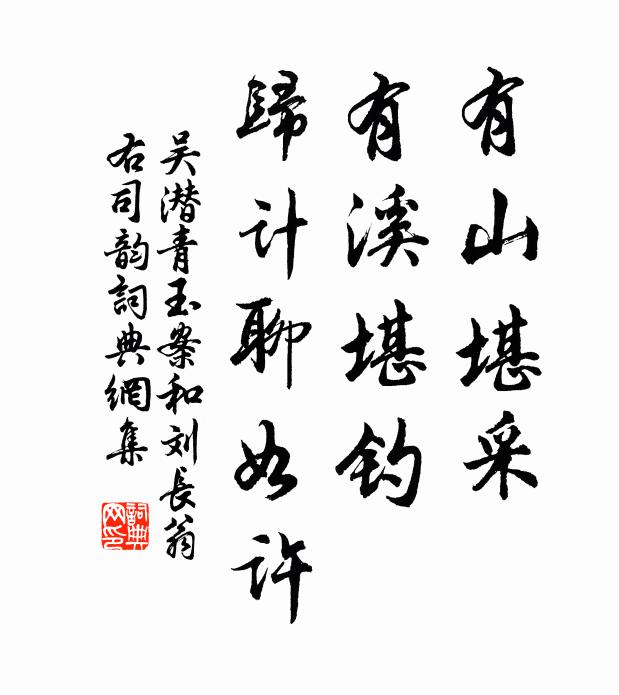 有山堪采
有溪堪钓
歸计聊如许
吴潜青玉案和刘長翁
右司韵詞典網集
詞典网印